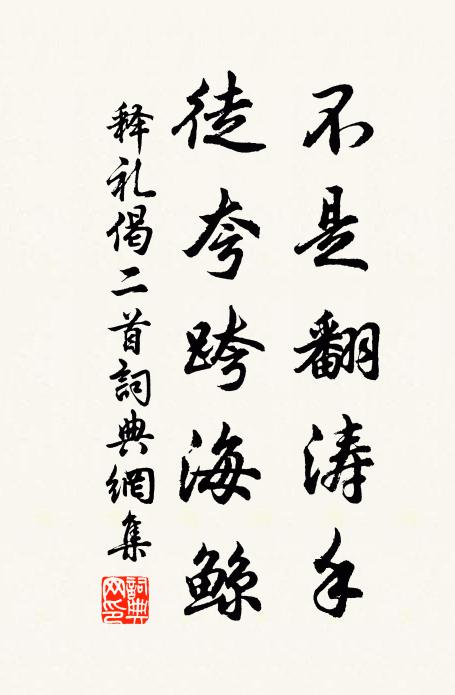 不是翻涛手
徒夸跨海鲸
释礼偈二首詞典網集
詞典网印